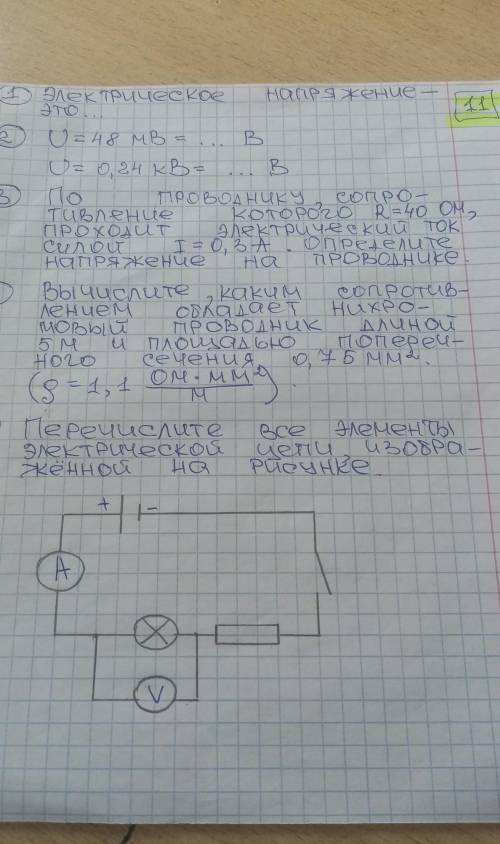 ① Электрическое напряжение –
это...
11
② U = 48 мВ = ... В
U = 0,24 кВ = ... В
3 По проводнику, сопро-
тивление которого R=40 Ом,
проходит электрический ток
силой I = 0,3 А. Определите
напряжение на проводнике.
Вычислите, каким сопротив-
лением обладает нихро-
мовый проводник длиной
5 м и площадью попереч-
ного сечения 0,75 мм².
(ρ = 1,1 Ом · мм²/м).
Перечислите все элементы
электрической цепи, изобра-
жённой на рисунке.
+ -
A
V